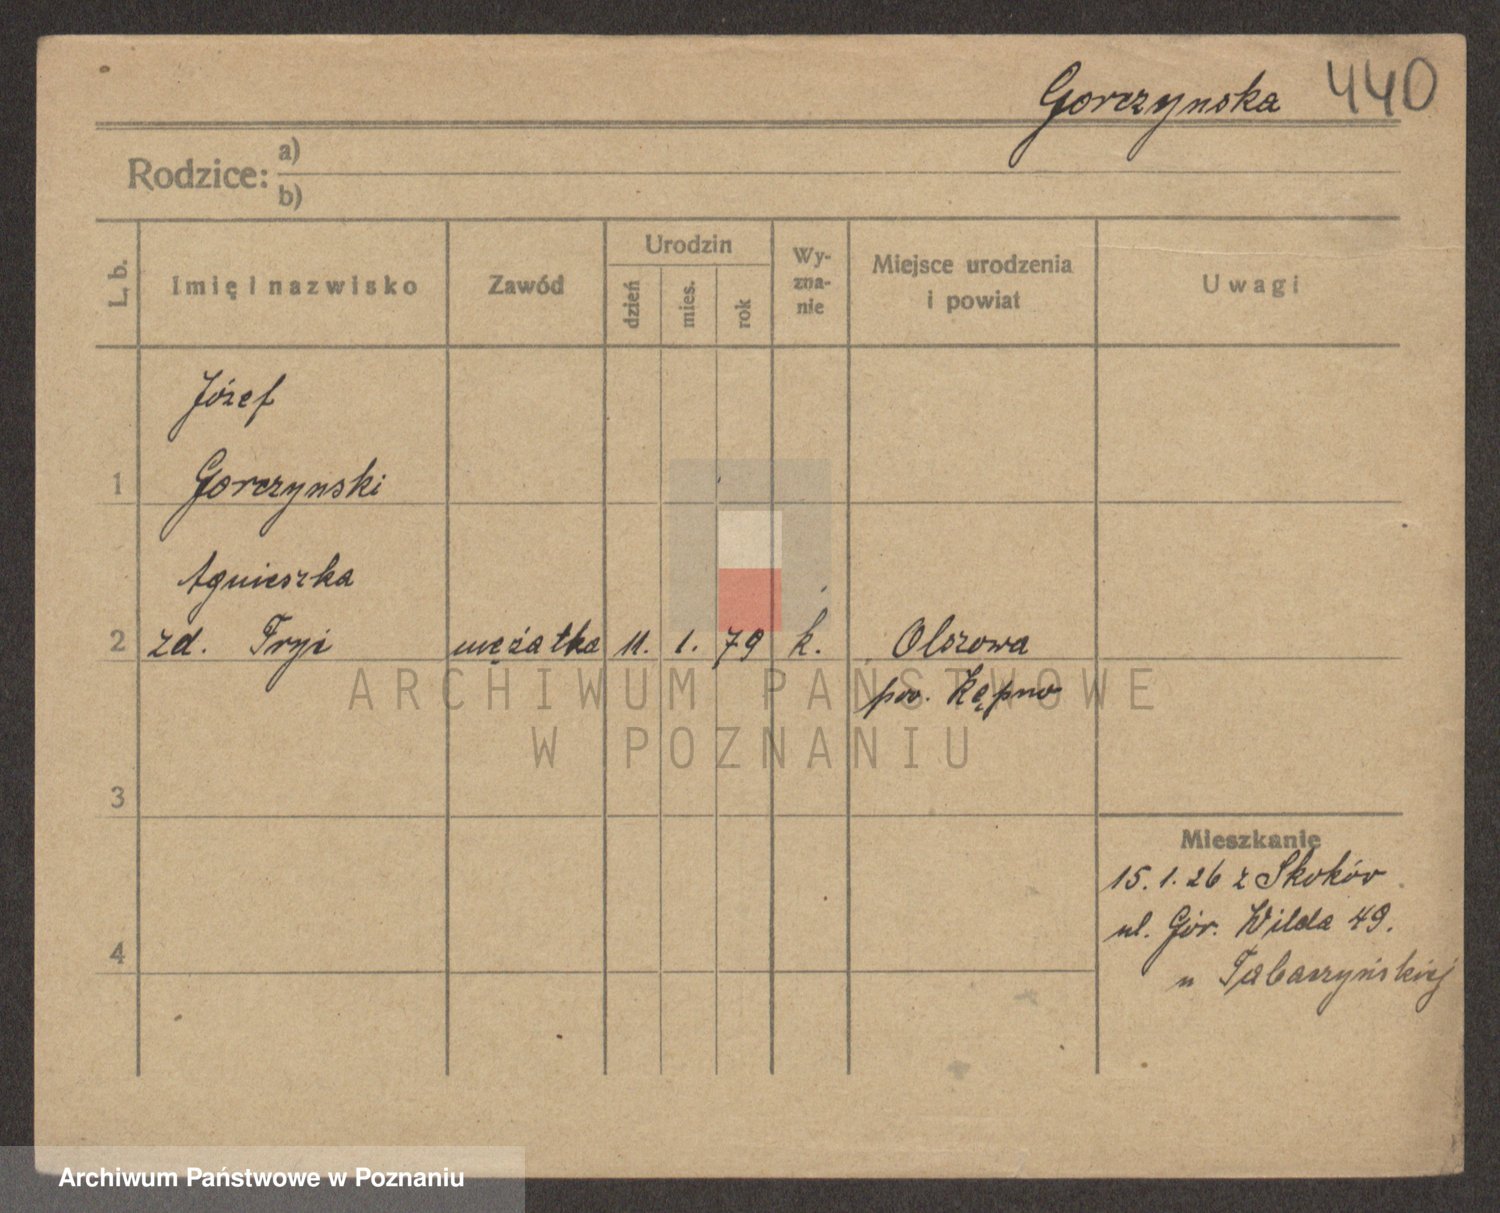 Gorczynska 440
Rodzice: a)
b)
L. b.
Imię i nazwisko
Zawód
Urodzin
dzień
mies.
rok
Wy-
zna-
nie
Miejsce urodzenia
i powiat
Uwagi
Józef
1 Gorczynski
Agnieszka
2 zd. Fryś mężatka 11. 1. 79 k. Olszowa
pow. Kępno
ARCHIWUM PAŃSTWOWE
W POZNANIU
3
Mieszkanie
15. 1. 26 z Skoków
ul. Gór. Wilda 49.
4
u Tabaszyńskiej
Archiwum Państwowe w Poznaniu